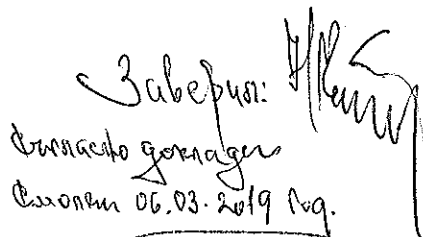 Заверил:
Съгласно доклад
Смолян 06.03.2019 год.